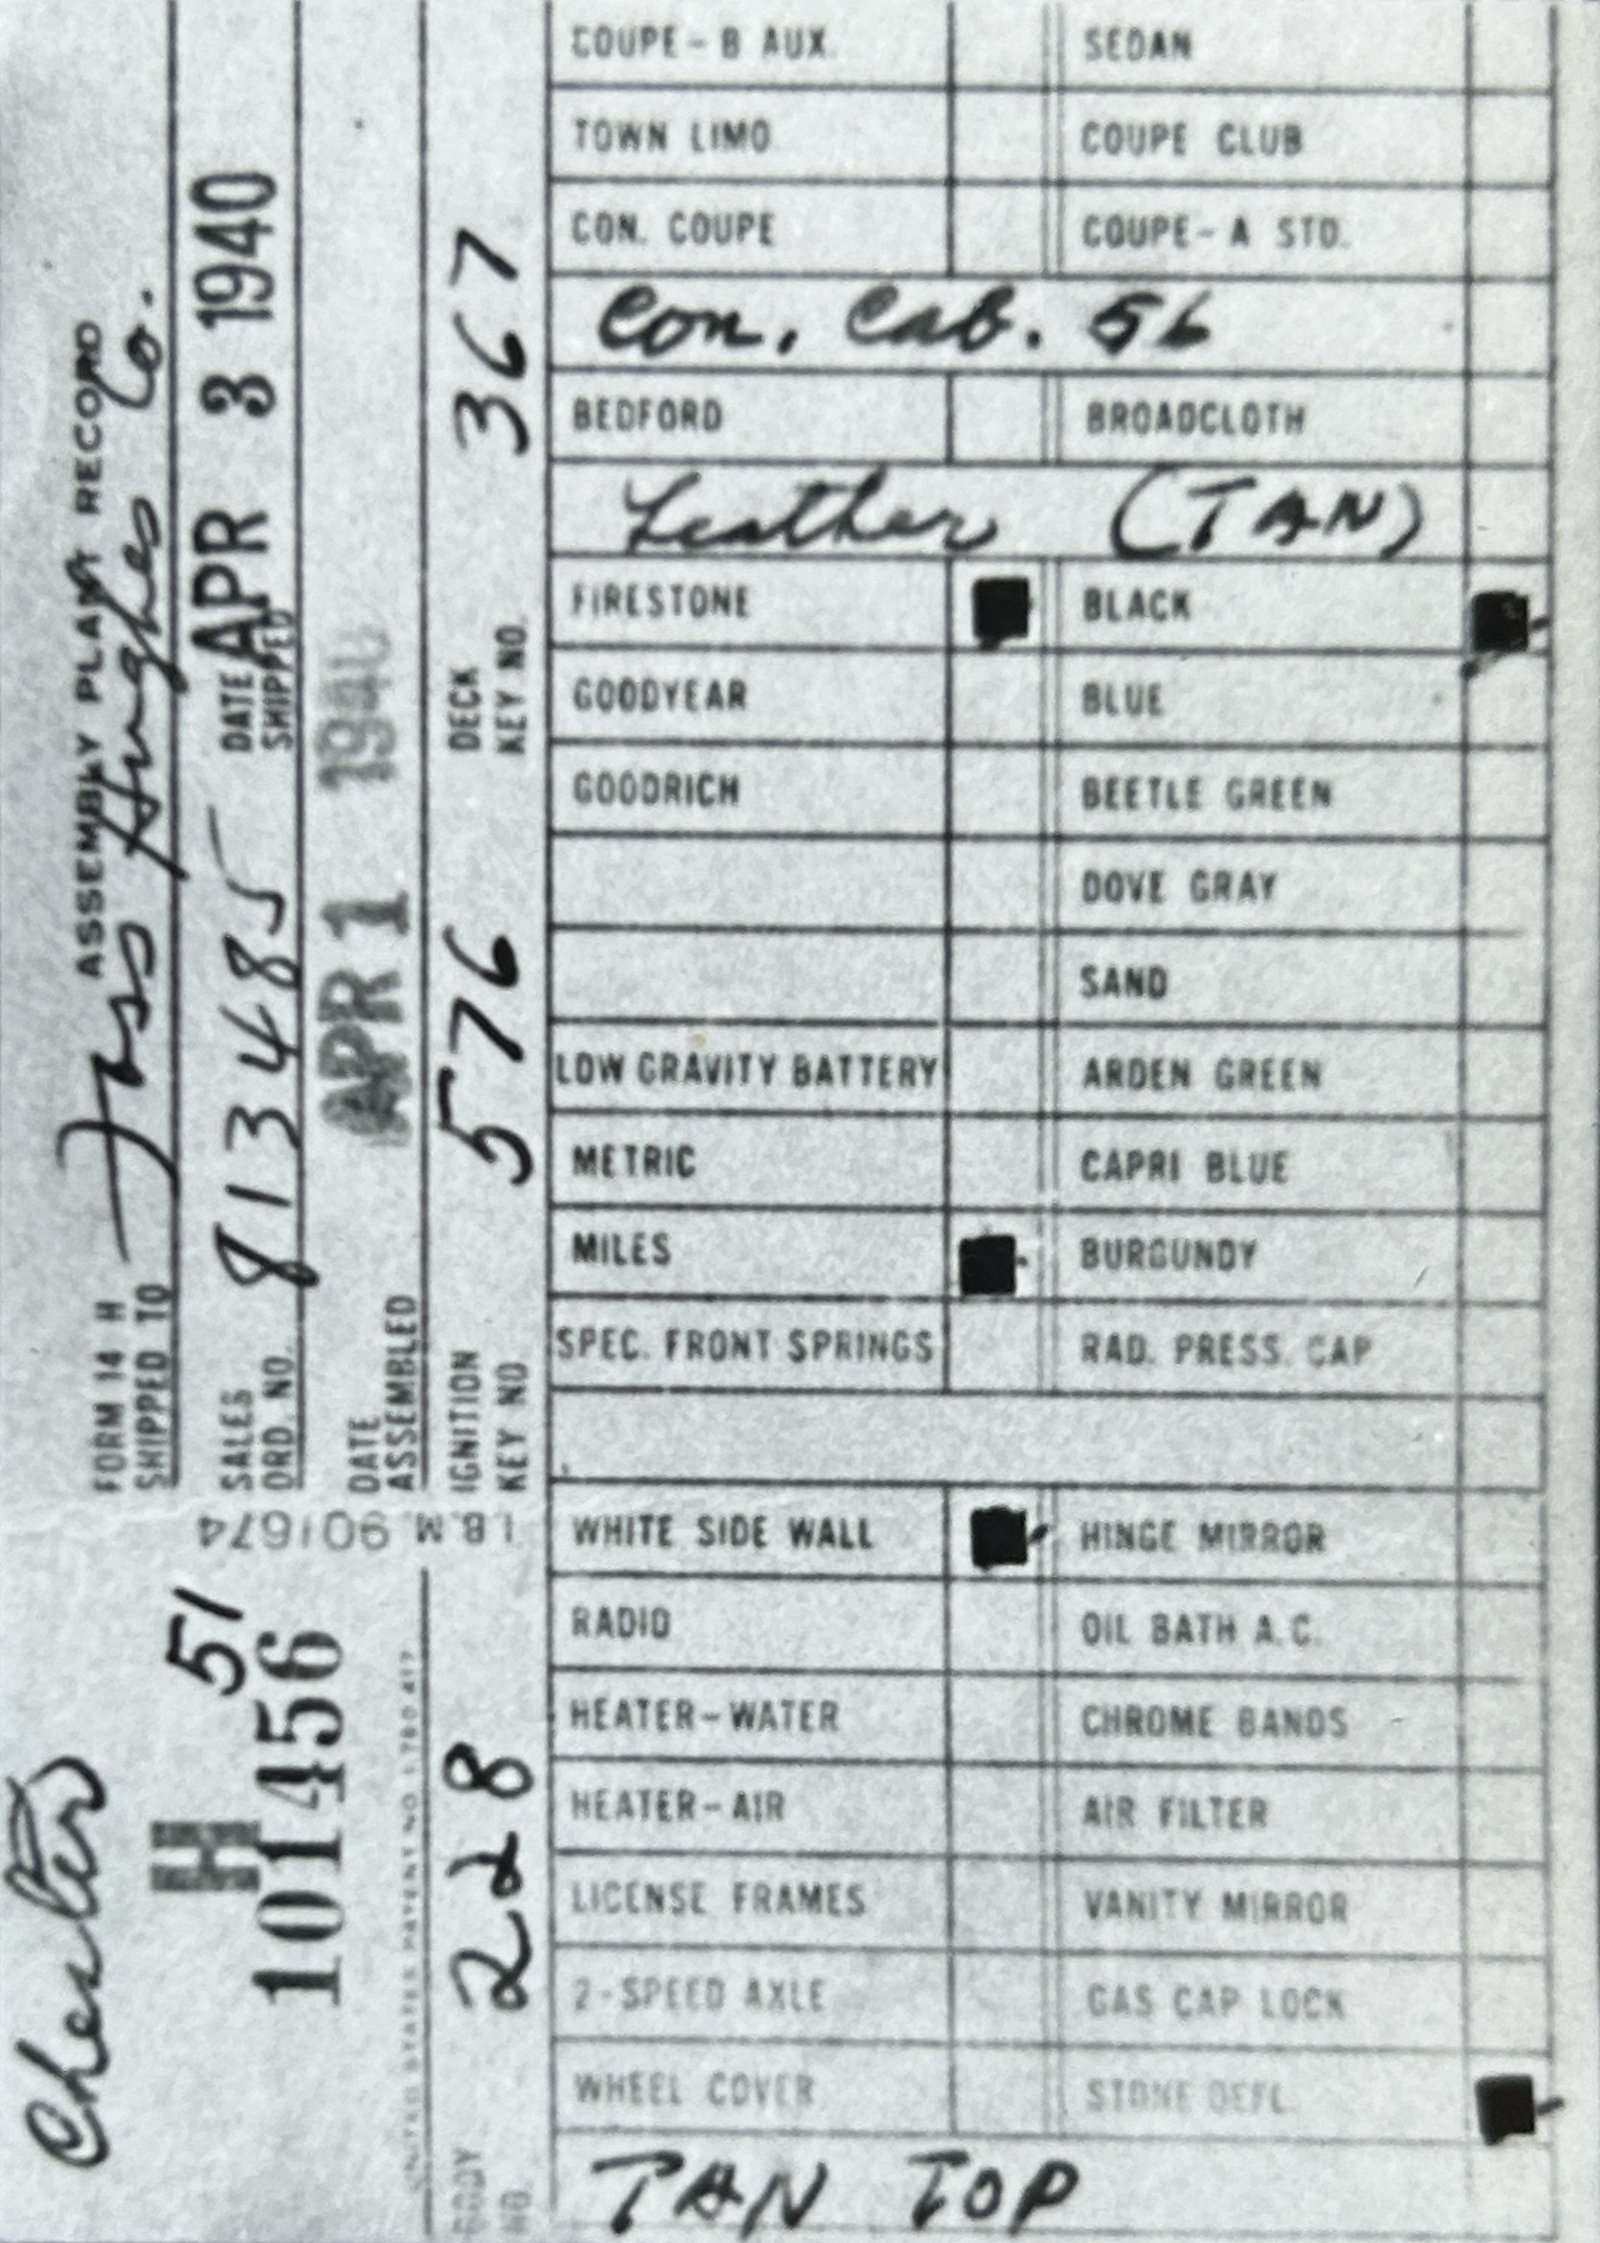 Chester
H 51
101456
UNITED STATES PATENT NO. 1,780,417
BODY NO. 228
I.B.M. 901674
FORM 14 H ASSEMBLY PLANT RECORD
SHIPPED TO Hughes Co.
SALES ORD. NO. 813485 DATE SHIPPED APR 3 1940
DATE ASSEMBLED APR 1 1940
IGNITION KEY NO 576 DECK KEY NO. 367
COUPE-B AUX. SEDAN
TOWN LIMO COUPE CLUB
CON. COUPE COUPE-A STD.
Con. Cab. 56
BEDFORD BROADCLOTH
Leather (TAN)
FIRESTONE BLACK
GOODYEAR BLUE
GOODRICH BEETLE GREEN
DOVE GRAY
SAND
LOW GRAVITY BATTERY ARDEN GREEN
METRIC CAPRI BLUE
MILES BURGUNDY
SPEC. FRONT SPRINGS RAD. PRESS. CAP
WHITE SIDE WALL HINGE MIRROR
RADIO OIL BATH A.C.
HEATER-WATER CHROME BANDS
HEATER-AIR AIR FILTER
LICENSE FRAMES VANITY MIRROR
2-SPEED AXLE GAS CAP LOCK
WHEEL COVER STONE DEFL.
TAN TOP